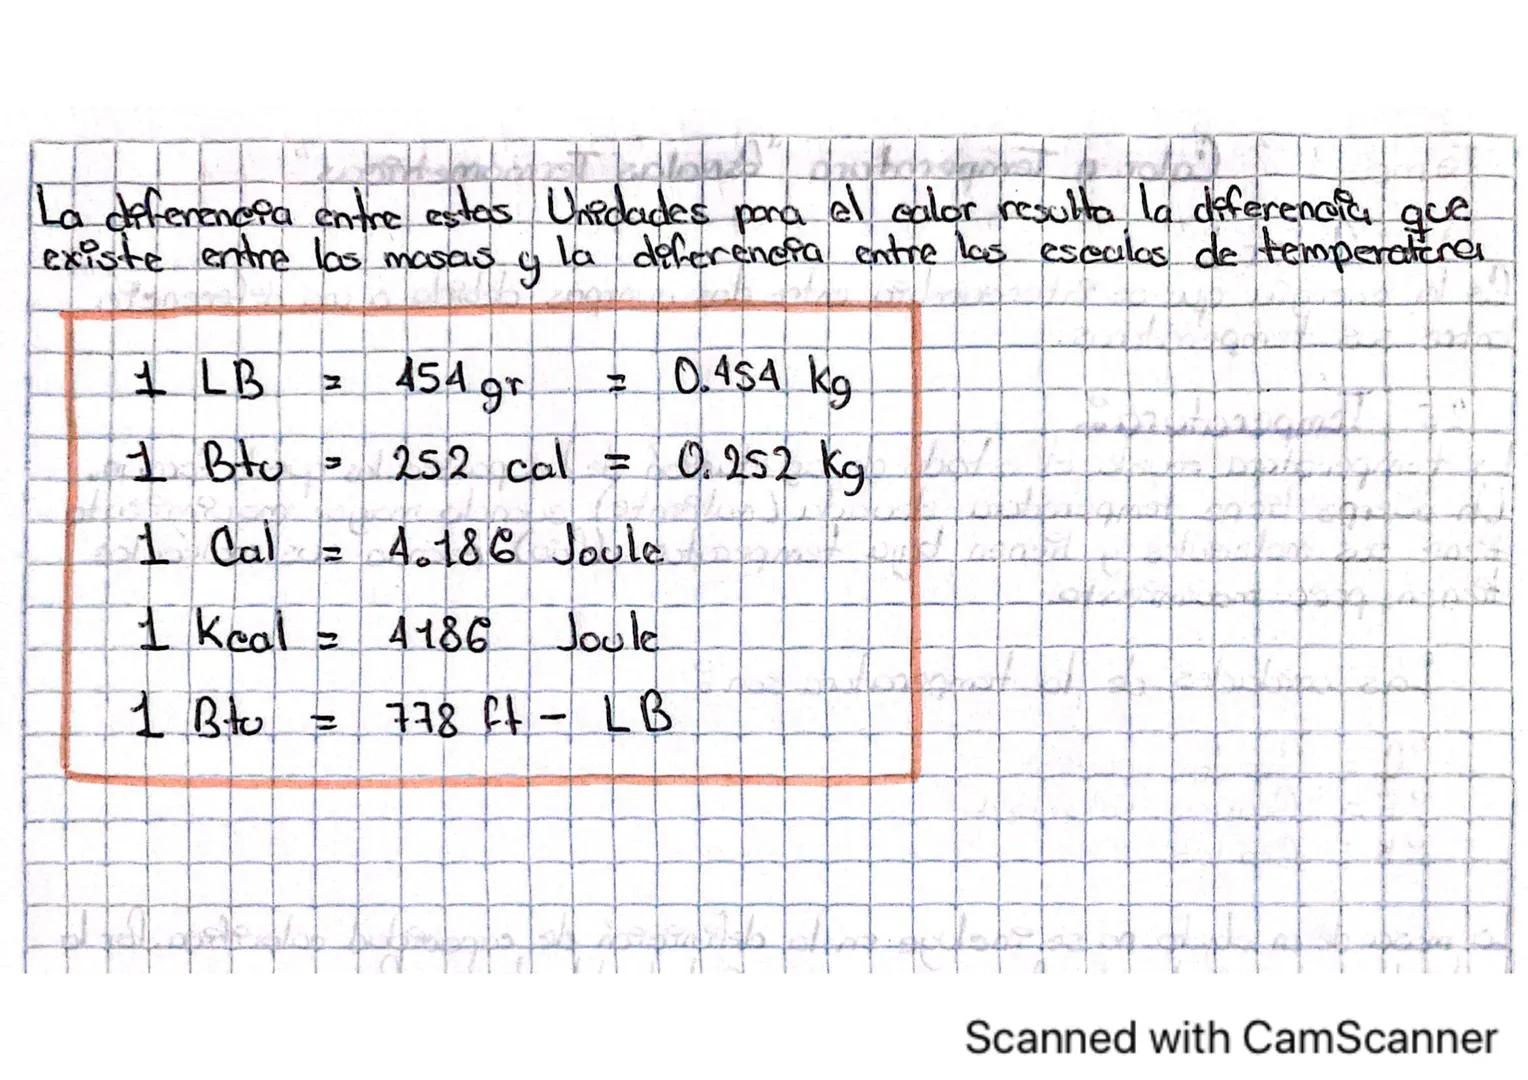 La diferencia entre estas Unidades para el calor resulta la diferencia que
existe entre las masas y la diferencia entre las escalas de temperatura
1 LB = 454 gr = 0.454 kg
1 Btu = 252 cal = 0.252 kg
1 Cal = 4.186 Joule
1 Kcal = 4186 Joule
1 Btu = 778 ft - LB
Scanned with CamScanner